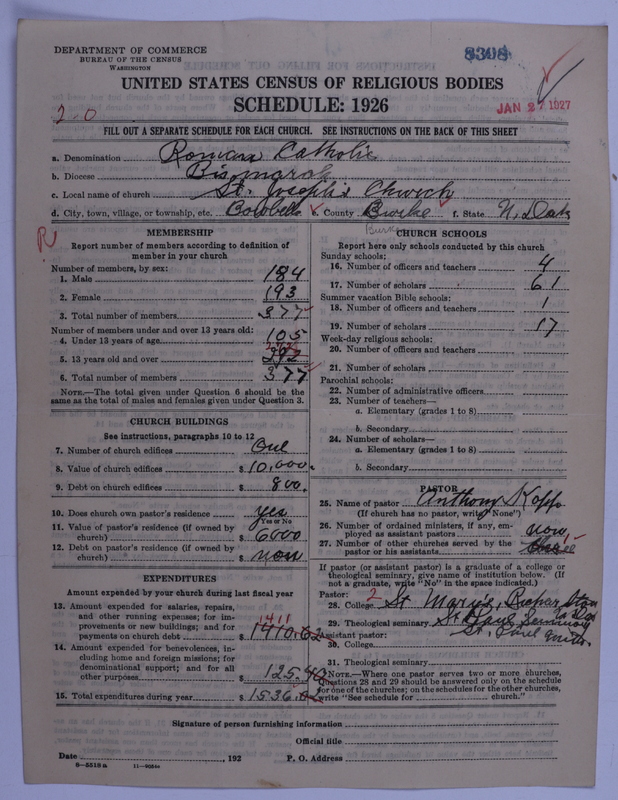 DEPARTMENT OF COMMERCE
BUREAU OF THE CENSUS
WASHINGTON
8398
UNITED STATES CENSUS OF RELIGIOUS BODIES
SCHEDULE: 1926
2-0
JAN 27 1927
FILL OUT A SEPARATE SCHEDULE FOR EACH CHURCH. SEE INSTRUCTIONS ON THE BACK OF THIS SHEET
a. Denomination Roman Catholic
b. Diocese Bismarck
c. Local name of church St. Joseph's Church
d. City, town, village, or township, etc. Bowbells e. County Burke f. State N. Dak
Burke
MEMBERSHIP
Report number of members according to definition of member in your church
Number of members, by sex:
1. Male 184
2. Female 193
3. Total number of members 377
Number of members under and over 13 years old:
4. Under 13 years of age 105
5. 13 years old and over
6. Total number of members 377
NOTE.—The total given under Question 6 should be the
same as the total of males and females given under Question 3.
CHURCH BUILDINGS
See instructions, paragraphs 10 to 12
7. Number of church edifices One
8. Value of church edifices $ 10,000.
9. Debt on church edifices $ 800.
10. Does church own pastor's residence yes
Yes or No
11. Value of pastor's residence (if owned by
church) $ 6000
12. Debt on pastor's residence (if owned by
church) $ non
EXPENDITURES
Amount expended by church during last fiscal year
13. Amount expended for salaries, repairs,
and other running expenses; for im-
provements or new buildings; and for
payments on church debt $ 1410.62
1411
14. Amount expended for benevolences, in-
cluding home and foreign missions; for
denominational support; and for all
other purposes $ 125.40
15. Total expenditures during year $ 1536.02
CHURCH SCHOOLS
Report here only schools conducted by this church
Sunday schools:
16. Number of officers and teachers 4
17. Number of scholars 61
Summer vacation Bible schools:
18. Number of officers and teachers 1
19. Number of scholars 17
Week-day religious schools:
20. Number of officers and teachers
21. Number of scholars
Parochial schools:
22. Number of administrative officers
23. Number of teachers—
a. Elementary (grades 1 to 8)
b. Secondary
24. Number of scholars—
a. Elementary (grades 1 to 8)
b. Secondary
PASTOR
25. Name of pastor Anthony Kopp
(If church has no pastor, write "None")
26. Number of ordained ministers, if any, em-
ployed as assistant pastors non
27. Number of other churches served by the
pastor or his assistants
If pastor (or assistant pastor) is a graduate of a college or
theological seminary, give name of institution below. (If
not a graduate, write "No" in the space indicated.)
Pastor: 2
28. College St Mary's, Richardton
N Dak
29. Theological seminary St Paul Seminary
St. Paul Minn.
Assistant pastor:
30. College
31. Theological seminary
NOTE.—Where one pastor serves two or more churches,
Questions 28 and 29 should be answered only on the schedule
for one of the churches; on the schedules for the other churches,
write "See schedule for church."
Signature of person furnishing information
Official title
Date , 192 P. O. Address
8—5518a 11—9051a